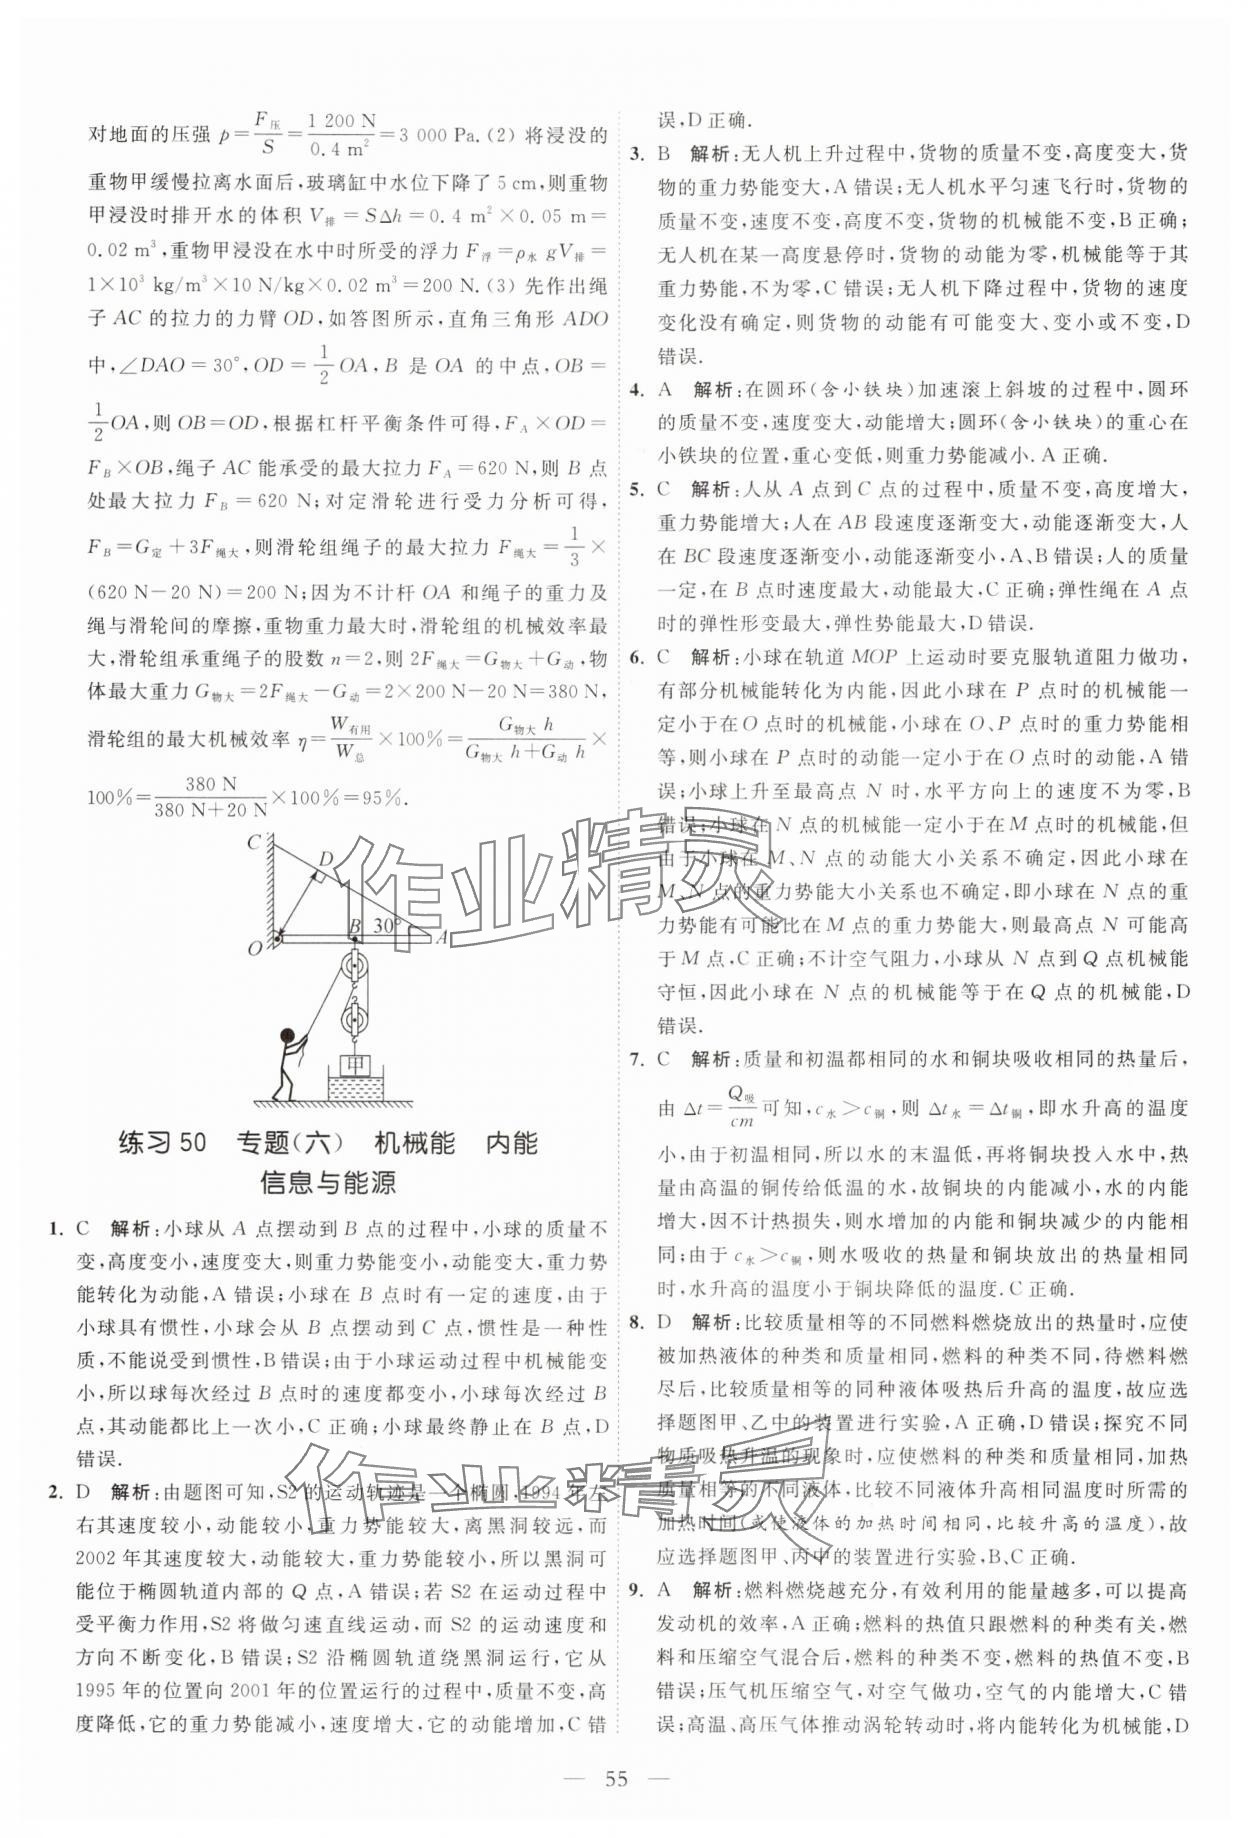 对地面的压强 p=F压/S=1 200 N/0.4 m²=3 000 Pa.(2) 将浸没的
重物甲缓慢拉离水面后,玻璃缸中水位下降了 5 cm,则重物
甲浸没时排开水的体积 V排=SΔh=0.4 m²×0.05 m=
0.02 m³,重物甲浸没在水中时所受的浮力 F浮=ρ水 gV排=
1×10³ kg/m³×10 N/kg×0.02 m³=200 N.(3) 先作出绳
子 AC 的拉力的力臂 OD,如答图所示,直角三角形 ADO
中,∠DAO=30°,OD=1/2 OA,B 是 OA 的中点,OB=
1/2 OA,则 OB=OD,根据杠杆平衡条件可得,F_A×OD=
F_B×OB,绳子 AC 能承受的最大拉力 F_A=620 N,则 B 点
处最大拉力 F_B=620 N;对定滑轮进行受力分析可得,
F_B=G定+3F绳大,则滑轮组绳子的最大拉力 F绳大=1/3×
(620 N-20 N)=200 N;因为不计杆 OA 和绳子的重力及
绳与滑轮间的摩擦,重物重力最大时,滑轮组的机械效率最
大,滑轮组承重绳子的股数 n=2,则 2F绳大=G物大+G动,物
体最大重力 G物大=2F绳大-G动=2×200 N-20 N=380 N,
滑轮组的最大机械效率 η=W有用/W总×100%=G物大 h/(G物大 h+G动 h)×
100%=380 N/(380 N+20 N)×100%=95%.
C
D
B
30°
A
O
甲
练习 50 专题(六) 机械能 内能
信息与能源
1. C 解析:小球从 A 点摆动到 B 点的过程中,小球的质量不
变,高度变小,速度变大,则重力势能变小,动能变大,重力势
能转化为动能,A 错误;小球在 B 点时有一定的速度,由于
小球具有惯性,小球会从 B 点摆动到 C 点,惯性是一种性
质,不能说受到惯性,B 错误;由于小球运动过程中机械能变
小,所以球每次经过 B 点时的速度都变小,小球每次经过 B
点,其动能都比上一次小,C 正确;小球最终静止在 B 点,D
错误.
2. D 解析:由题图可知,S2 的运动轨迹是一个椭圆,1994 年左
右其速度较小,动能较小,重力势能较大,离黑洞较远,而
2002 年其速度较大,动能较大,重力势能较小,所以黑洞可
能位于椭圆轨道内部的 Q 点,A 错误;若 S2 在运动过程中
受平衡力作用,S2 将做匀速直线运动,而 S2 的运动速度和
方向不断变化,B 错误;S2 沿椭圆轨道绕黑洞运行,它从
1995 年的位置向 2001 年的位置运行的过程中,质量不变,高
度降低,它的重力势能减小,速度增大,它的动能增加,C 错
误,D 正确.
3. B 解析:无人机上升过程中,货物的质量不变,高度变大,货
物的重力势能变大,A 错误;无人机水平匀速飞行时,货物的
质量不变,速度不变,高度不变,货物的机械能不变,B 正确;
无人机在某一高度悬停时,货物的动能为零,机械能等于其
重力势能,不为零,C 错误;无人机下降过程中,货物的速度
变化没有确定,则货物的动能有可能变大、变小或不变,D
错误.
4. A 解析:在圆环(含小铁块)加速滚上斜坡的过程中,圆环
的质量不变,速度变大,动能增大;圆环(含小铁块)的重心在
小铁块的位置,重心变低,则重力势能减小.A 正确.
5. C 解析:人从 A 点到 C 点的过程中,质量不变,高度增大,
重力势能增大;人在 AB 段速度逐渐变大,动能逐渐变大,人
在 BC 段速度逐渐变小,动能逐渐变小,A、B 错误;人的质量
一定,在 B 点时速度最大,动能最大,C 正确;弹性绳在 A 点
时的弹性形变最大,弹性势能最大,D 错误.
6. C 解析:小球在轨道 MOP 上运动时要克服轨道阻力做功,
有部分机械能转化为内能,因此小球在 P 点时的机械能一
定小于在 O 点时的机械能,小球在 O、P 点时的重力势能相
等,则小球在 P 点时的动能一定小于在 O 点时的动能,A 错
误;小球上升至最高点 N 时,水平方向上的速度不为零,B
错误;小球在 N 点的机械能一定小于在 M 点时的机械能,但
由于小球在 M、N 点的动能大小关系不确定,因此小球在
M、N 点的重力势能大小关系也不确定,即小球在 N 点的重
力势能有可能比在 M 点的重力势能大,则最高点 N 可能高
于 M 点,C 正确;不计空气阻力,小球从 N 点到 Q 点机械能
守恒,因此小球在 N 点的机械能等于在 Q 点的机械能,D
错误.
7. C 解析:质量和初温都相同的水和铜块吸收相同的热量后,
由 Δt=Q吸/cm 可知,c水>c铜,则 Δt水=Δt铜,即水升高的温度
小,由于初温相同,所以水的末温低,再将铜块投入水中,热
量由高温的铜传给低温的水,故铜块的内能减小,水的内能
增大,因不计热损失,则水增加的内能和铜块减少的内能相
同;由于 c水>c铜,则水吸收的热量和铜块放出的热量相同
时,水升高的温度小于铜块降低的温度.C 正确.
8. D 解析:比较质量相等的不同燃料燃烧放出的热量时,应使
被加热液体的种类和质量相同,燃料的种类不同,待燃料燃
尽后,比较质量相等的同种液体吸热后升高的温度,故应选
择题图甲、乙中的装置进行实验,A 正确,D 错误;探究不同
物质吸热升温的现象时,应使燃料的种类和质量相同,加热
质量相等的不同液体,比较不同液体升高相同温度时所需的
加热时间(或使液体的加热时间相同,比较升高的温度),故
应选择题图甲、丙中的装置进行实验,B、C 正确.
9. A 解析:燃料燃烧越充分,有效利用的能量越多,可以提高
发动机的效率,A 正确;燃料的热值只跟燃料的种类有关,燃
料和压缩空气混合后,燃料的种类不变,燃料的热值不变,B
错误;压气机压缩空气,对空气做功,空气的内能增大,C 错
误;高温、高压气体推动涡轮转动时,将内能转化为机械能,D
— 55 —
作业精灵
作业精灵